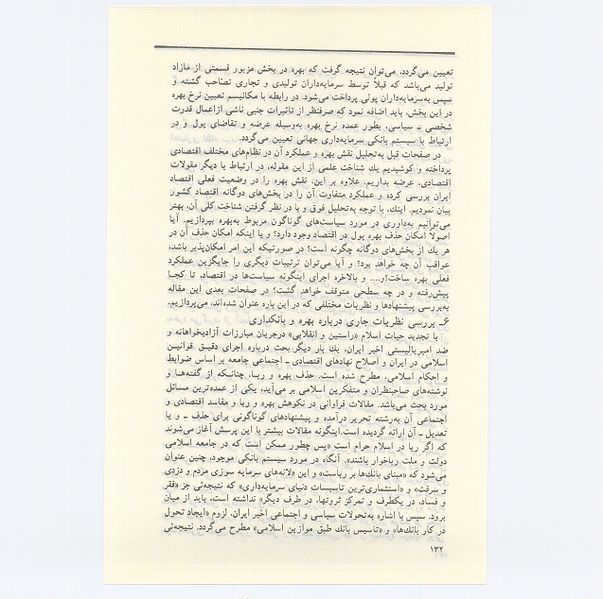 تعیین می‌گردد، می‌توان نتیجه گرفت که بهره در بخش مزبور قسمتی از مازاد
تولید می‌باشد که قبلاً توسط سرمایه‌داران تولیدی و تجاری تصاحب گشته و
سپس به‌سرمایه‌داران پولی پرداخت می‌شود. در رابطه با مکانیسم تعیین نرخ بهره
در این بخش، باید اضافه نمود که صرفنظر از تاثیرات جنبی ناشی از اعمال قدرت
شخصی ـ سیاسی، بطور عمده نرخ بهره به‌وسیله عرضه و تقاضای پول و در
ارتباط با سیستم بانکی سرمایه‌داری جهانی تعیین می‌گردد.
در صفحات قبل به‌تحلیل نقش بهره و عملکرد آن در نظام‌های مختلف اقتصادی
پرداخته و کوشیدیم یك شناخت علمی از این مقوله، در ارتباط با دیگر مقولات
اقتصادی، عرضه بداریم. علاوه بر این، نقش بهره را در وضعیت فعلی اقتصاد
ایران بررسی کرده و عملکرد متفاوت آن را در بخش‌های دوگانه اقتصاد کشور
بیان نمودیم. اینك، با توجه به‌تحلیل فوق و با در نظر گرفتن شناخت کلی آن، بهتر
می‌توانیم به‌داوری در مورد سیاست‌های گوناگون مربوط به‌بهره بپردازیم. آیا
اصولاً امکان حذف بهره پول در اقتصاد وجود دارد؟ و یا اینکه امکان حذف آن در
هر یك از بخش‌های دوگانه چگونه است؟ در صورتیکه این امر امکان‌پذیر باشد،
عواقب آن چه خواهد بود؟ و آیا می‌توان ترتیبات دیگری را جایگزین عملکرد
فعلی بهره ساخت؟و... و بالاخره اجرای اینگونه سیاست‌ها در اقتصاد، تا کجا
پیش‌رفته و در چه سطحی متوقف خواهد گشت؟ در صفحات بعدی این مقاله
به‌بررسی پیشنهادها و نظریات مختلفی که در این باره عنوان شده‌اند، می‌پردازیم.
۶ـ بررسی نظریات جاری درباره بهره و بانکداری
با تجدید حیات اسلام «راستین و انقلابی» درجریان مبارزات آزادیخواهانه و
ضد امپریالیستی اخیر ایران، یك بار دیگر بحث درباره اجرای دقیق قوانین
اسلامی در ایران و اصلاح نهادهای اقتصادی ـ اجتماعی جامعه بر اساس ضوابط
و احکام اسلامی، مطرح شده است. حذف بهره و ربا، چنانکه از گفته‌ها و
نوشته‌های صاحبنظران و متفکرین اسلامی بر می‌آید، یکی از عمده‌ترین مسائل
مورد بحث می‌باشد. مقالات فراوانی در نکوهش بهره و ربا و مفاسد اقتصادی و
اجتماعی آن به‌رشته تحریر درآمده و پیشنهادهای گوناگونی برای حذف ـ و یا
تعدیل ـ آن ارائه گردیده است.اینگونه مقالات بیشتر با این پرسش آغاز می‌شوند
که اگر ربا در اسلام حرام است «پس چطور ممکن است که در جامعه اسلامی
دولت و ملت رباخوار باشند». آنگاه در مورد سیستم بانکی موجود، چنین عنوان
می‌شود که «مبنای بانك‌ها بر رباست» و این «لانه‌های سرمایه سوزی مردم و دزدی
و سرقت» و «استثماری‌ترین تاسیسات دنیای سرمایه‌داری» که نتیجه‌ئی جز «فقر
و فساد، در یکطرف و تمرکز ثروتها، در طرف دیگر» نداشته است، باید از میان
برود. سپس با اشاره به‌تحولات سیاسی و اجتماعی اخیر ایران، لزوم «ایجاد تحول
در کار بانك‌ها» و «تاسیس بانك طبق موازین اسلامی» مطرح می‌گردد. نتیجه‌ئی
۱۳۲